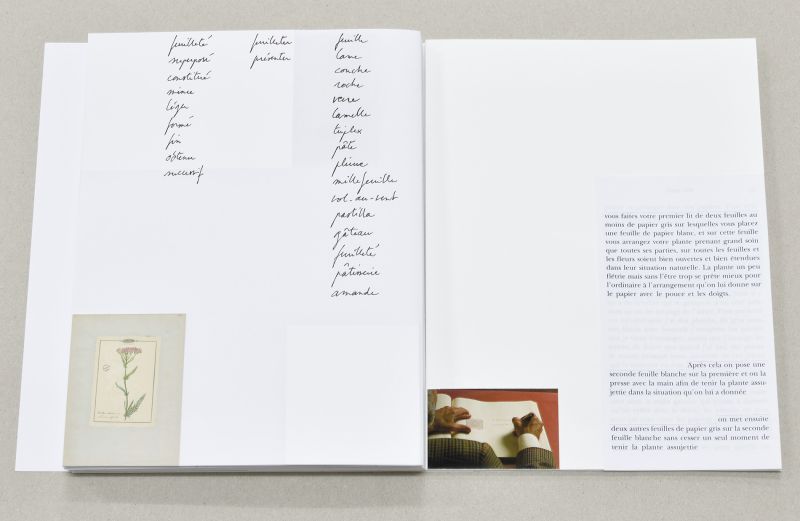 feuilleté
superposé
constitué
mince
léger
formé
fin
obtenu
successif
feuilleter
présenter
feuille
lame
couche
roche
verre
lamelle
triplex
pâte
plieuse
millefeuille
vol-au-vent
pastilla
gâteau
feuilleté
pâtisserie
amande
vous faites votre premier lit de deux feuilles au
moins de papier gris sur lesquelles vous placez
une feuille de papier blanc, et sur cette feuille
vous arrangez votre plante prenant grand soin
que toutes ses parties, sur toutes les feuilles et
les fleurs soient bien ouvertes et bien étendues
dans leur situation naturelle. La plante un peu
flétrie mais sans l'être trop se prête mieux pour
l'ordinaire à l'arrangement qu'on lui donne sur
le papier avec le pouce et les doigts.
Après cela on pose une
seconde feuille blanche sur la première et on la
presse avec la main afin de tenir la plante assu-
jettie dans la situation qu'on lui a donnée
on met ensuite
deux autres feuilles de papier gris sur la seconde
feuille blanche sans cesser un seul moment de
tenir la plante assujettie